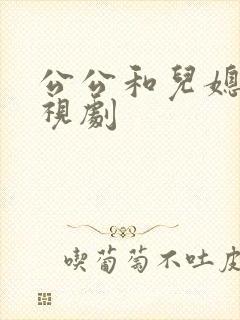 公公和兒媳
視劇
喫葡萄不吐皮